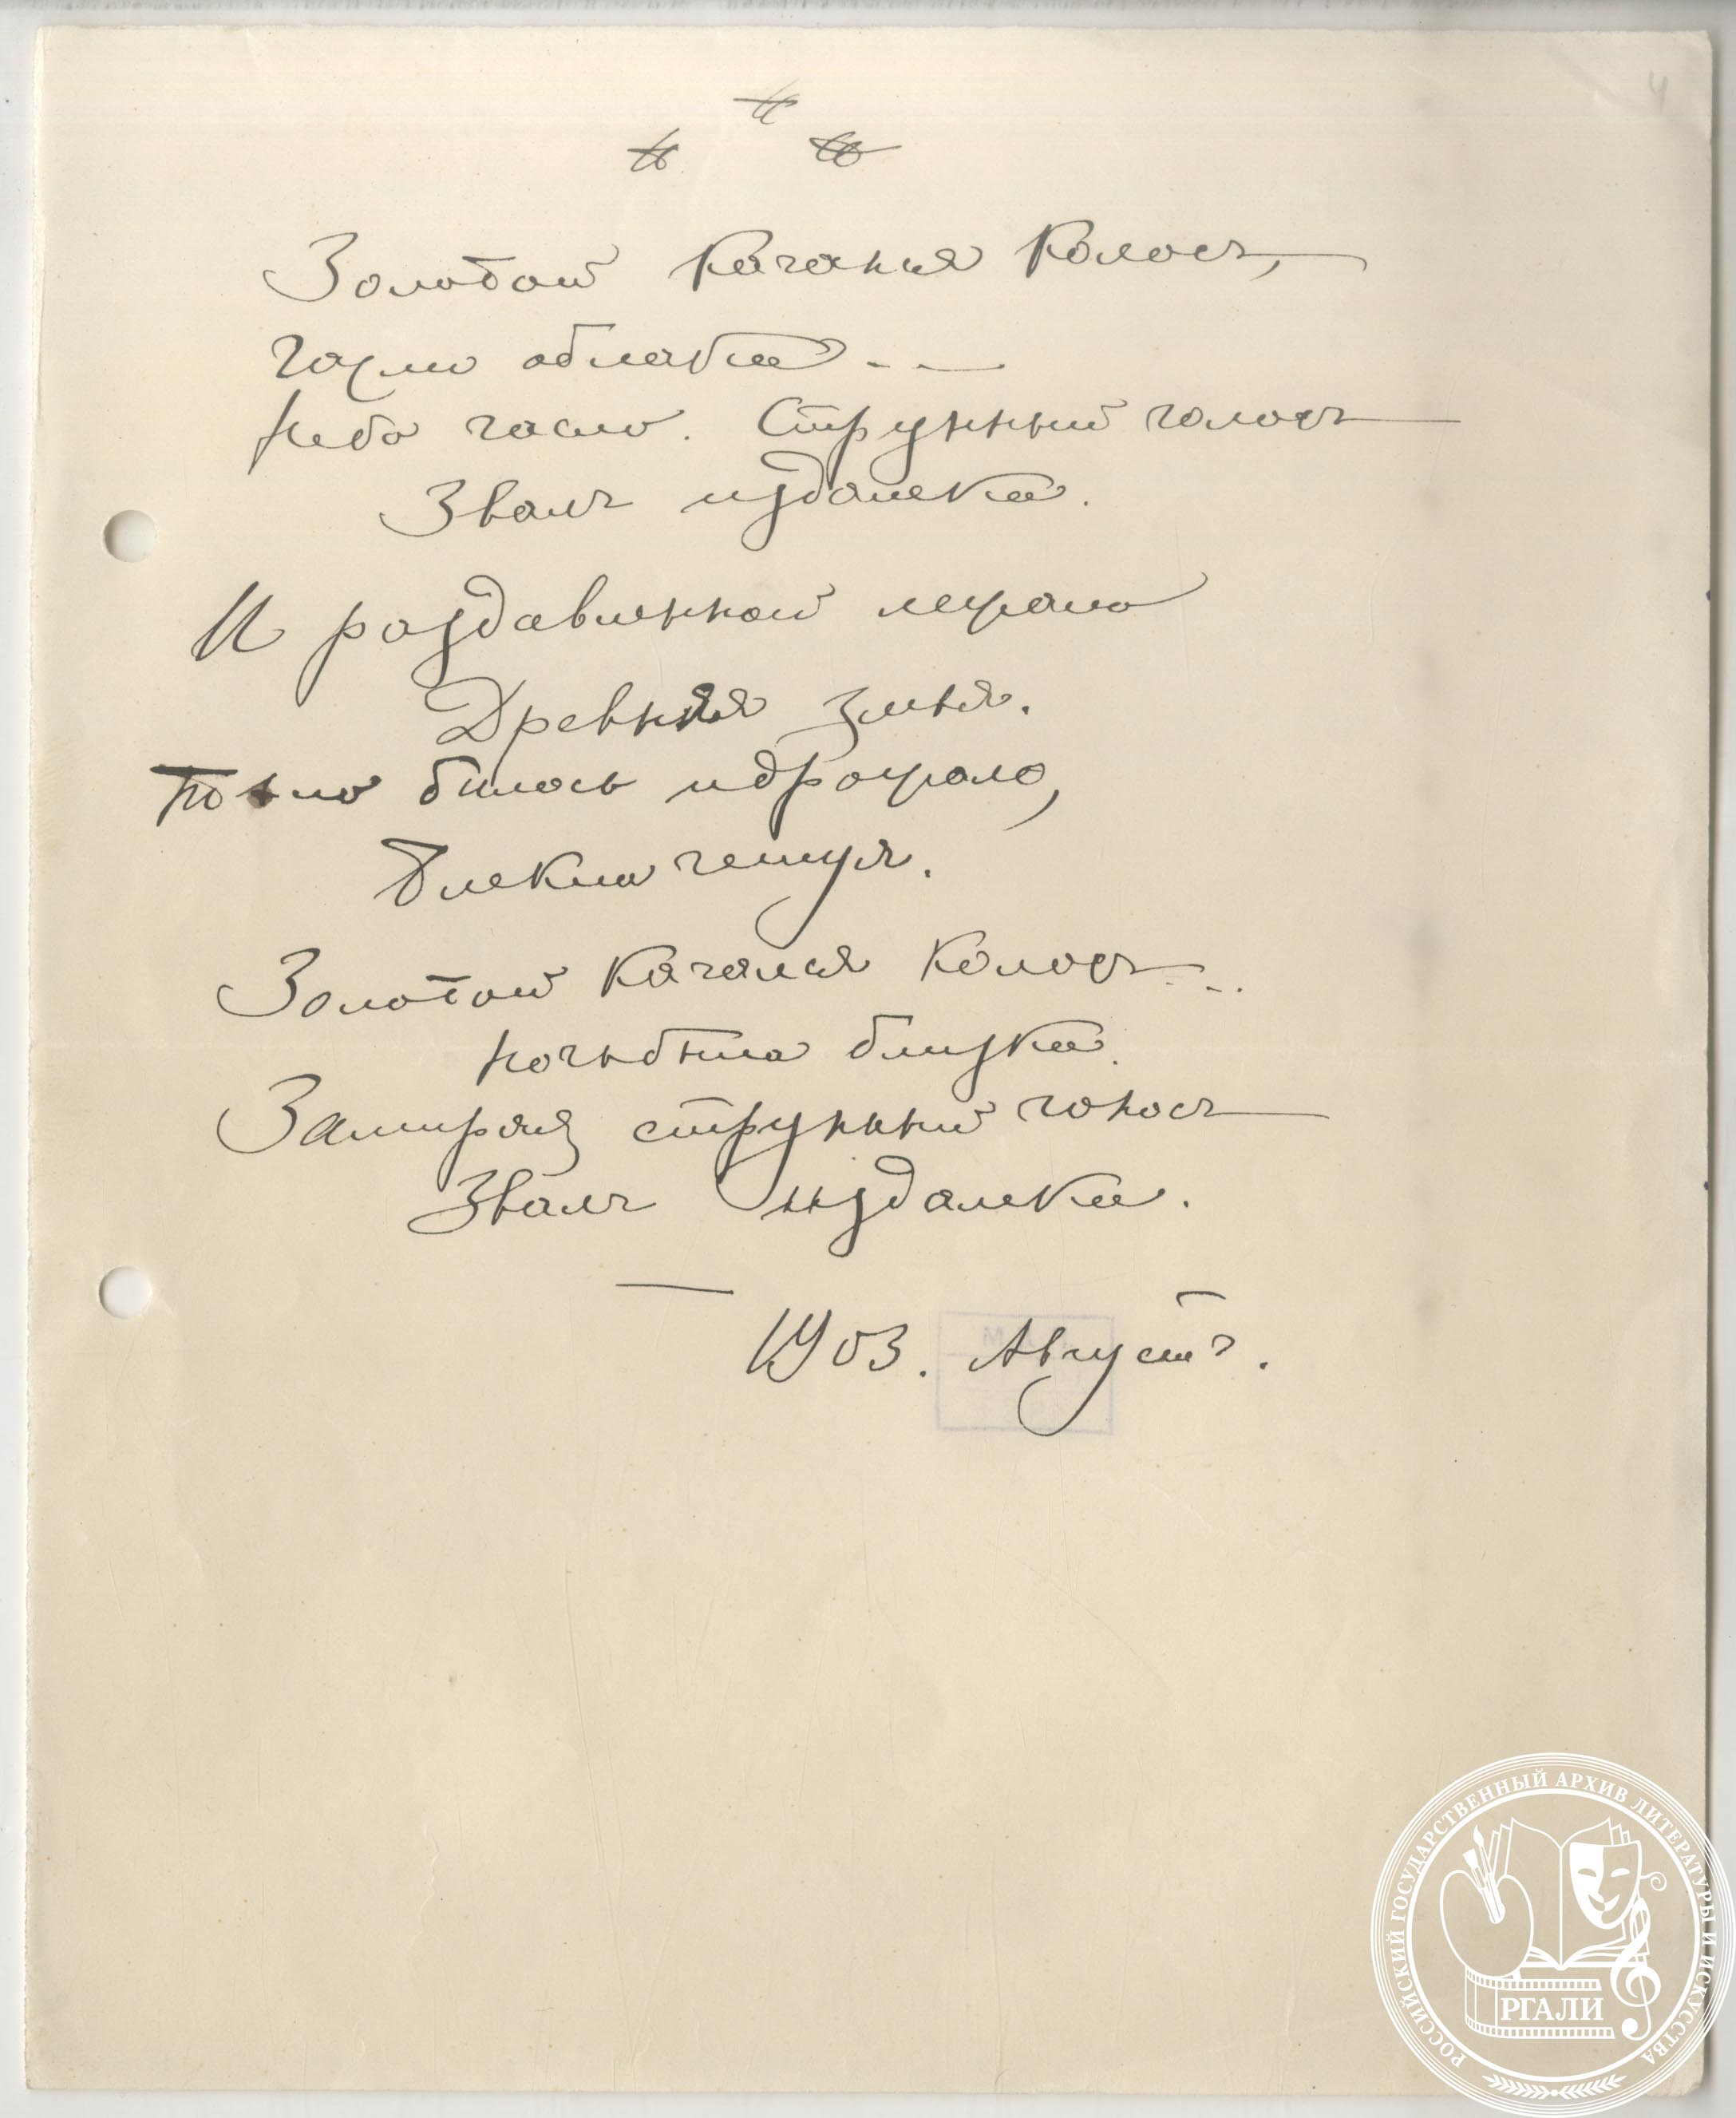 4
* * *
Золотой качался колосъ,
Гасли облака...
Небо гасло. Струнный голосъ
Звалъ издалека.
И раздавленной лежала
Древняя змѣя.
Тѣло билось и дрожало,
Блекла чешуя.
Золотой качался колосъ...
Ночь была близка.
Замирая струнный голосъ
Звалъ издалека.
1903. Августъ.
РОССИЙСКИЙ ГОСУДАРСТВЕННЫЙ АРХИВ ЛИТЕРАТУРЫ И ИСКУССТВА
РГАЛИ